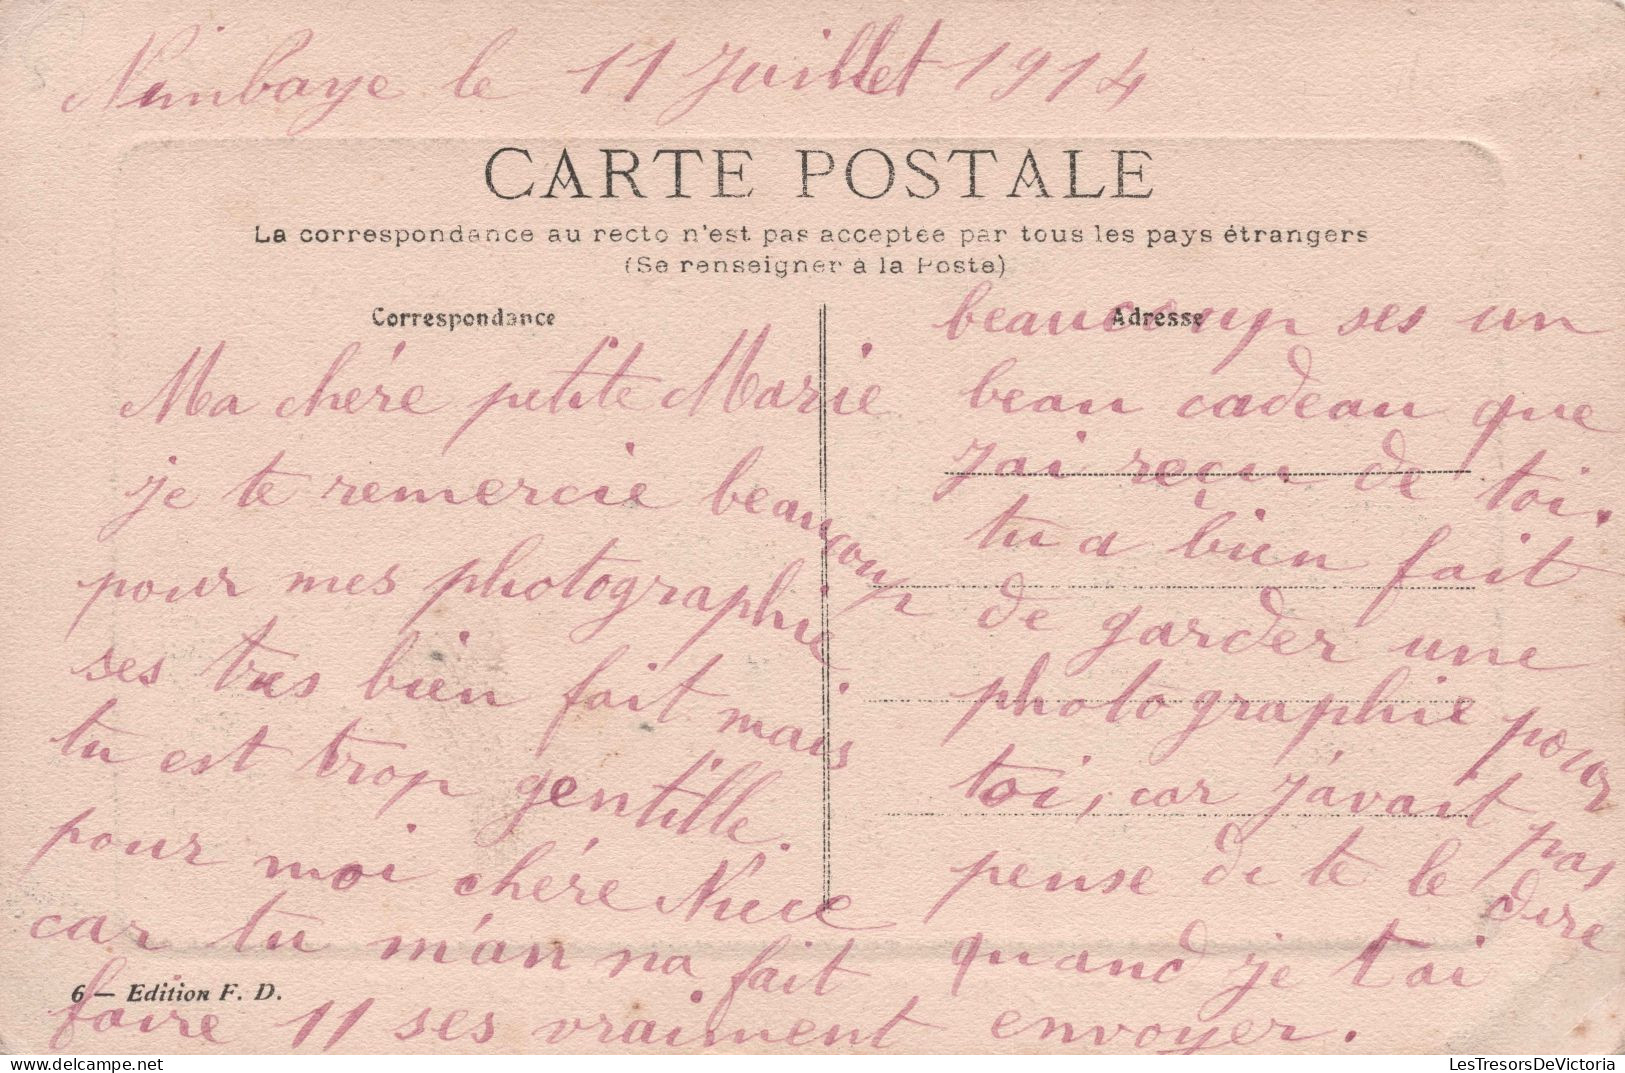 Nimbaye le 11 Juillet 1914
CARTE POSTALE
La correspondance au recto n'est pas acceptée par tous les pays étrangers
(Se renseigner à la Poste)
Correspondance
Ma chére petite Marie
je te remercie beaucoup
pour mes photographie
ses tres bien fait mais
tu est trop gentille
pour moi chére Niece
car tu m'an na fait
faire 11 ses vraiment
6 — Edition F. D.
Adresse
beaucoup ses un
beau cadeau que
j'ai reçu de toi.
tu a bien fait
de garder une
photographie pour
toi, car j'avait pas
pense de te le dire
quand je t'ai
envoyer.
LesTresorsDeVictoria